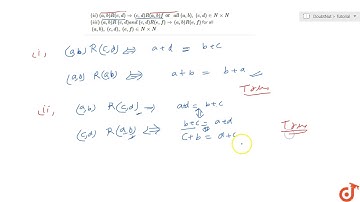 (ii) (a, b)R(c, d) → (c, d)R(a, b)f or all (a, b), (c, d) ∈ N × N
(iii) (a, b)R(c, d)and (c, d)R(e, f) → (a, b)R(e, f) for al
(a, b), (c, d), (e, f) ∈ N × N
DoubtNut - Tutorial
(i), (a,b) R (c,d) ⇔ a+d = b+c
(a,b) R (a,b) ⇔ a+b = b+a
True
(ii, (a,b) R (c,d) → a+d = b+c
(c,d) R (a,b) ⇔ b+c = a+d
c+b = d+c
True